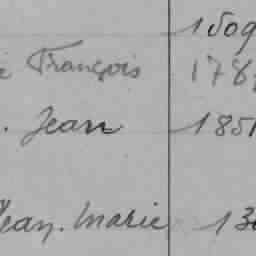 1809
François 178
. Jean 1851
Jean. Marie 13